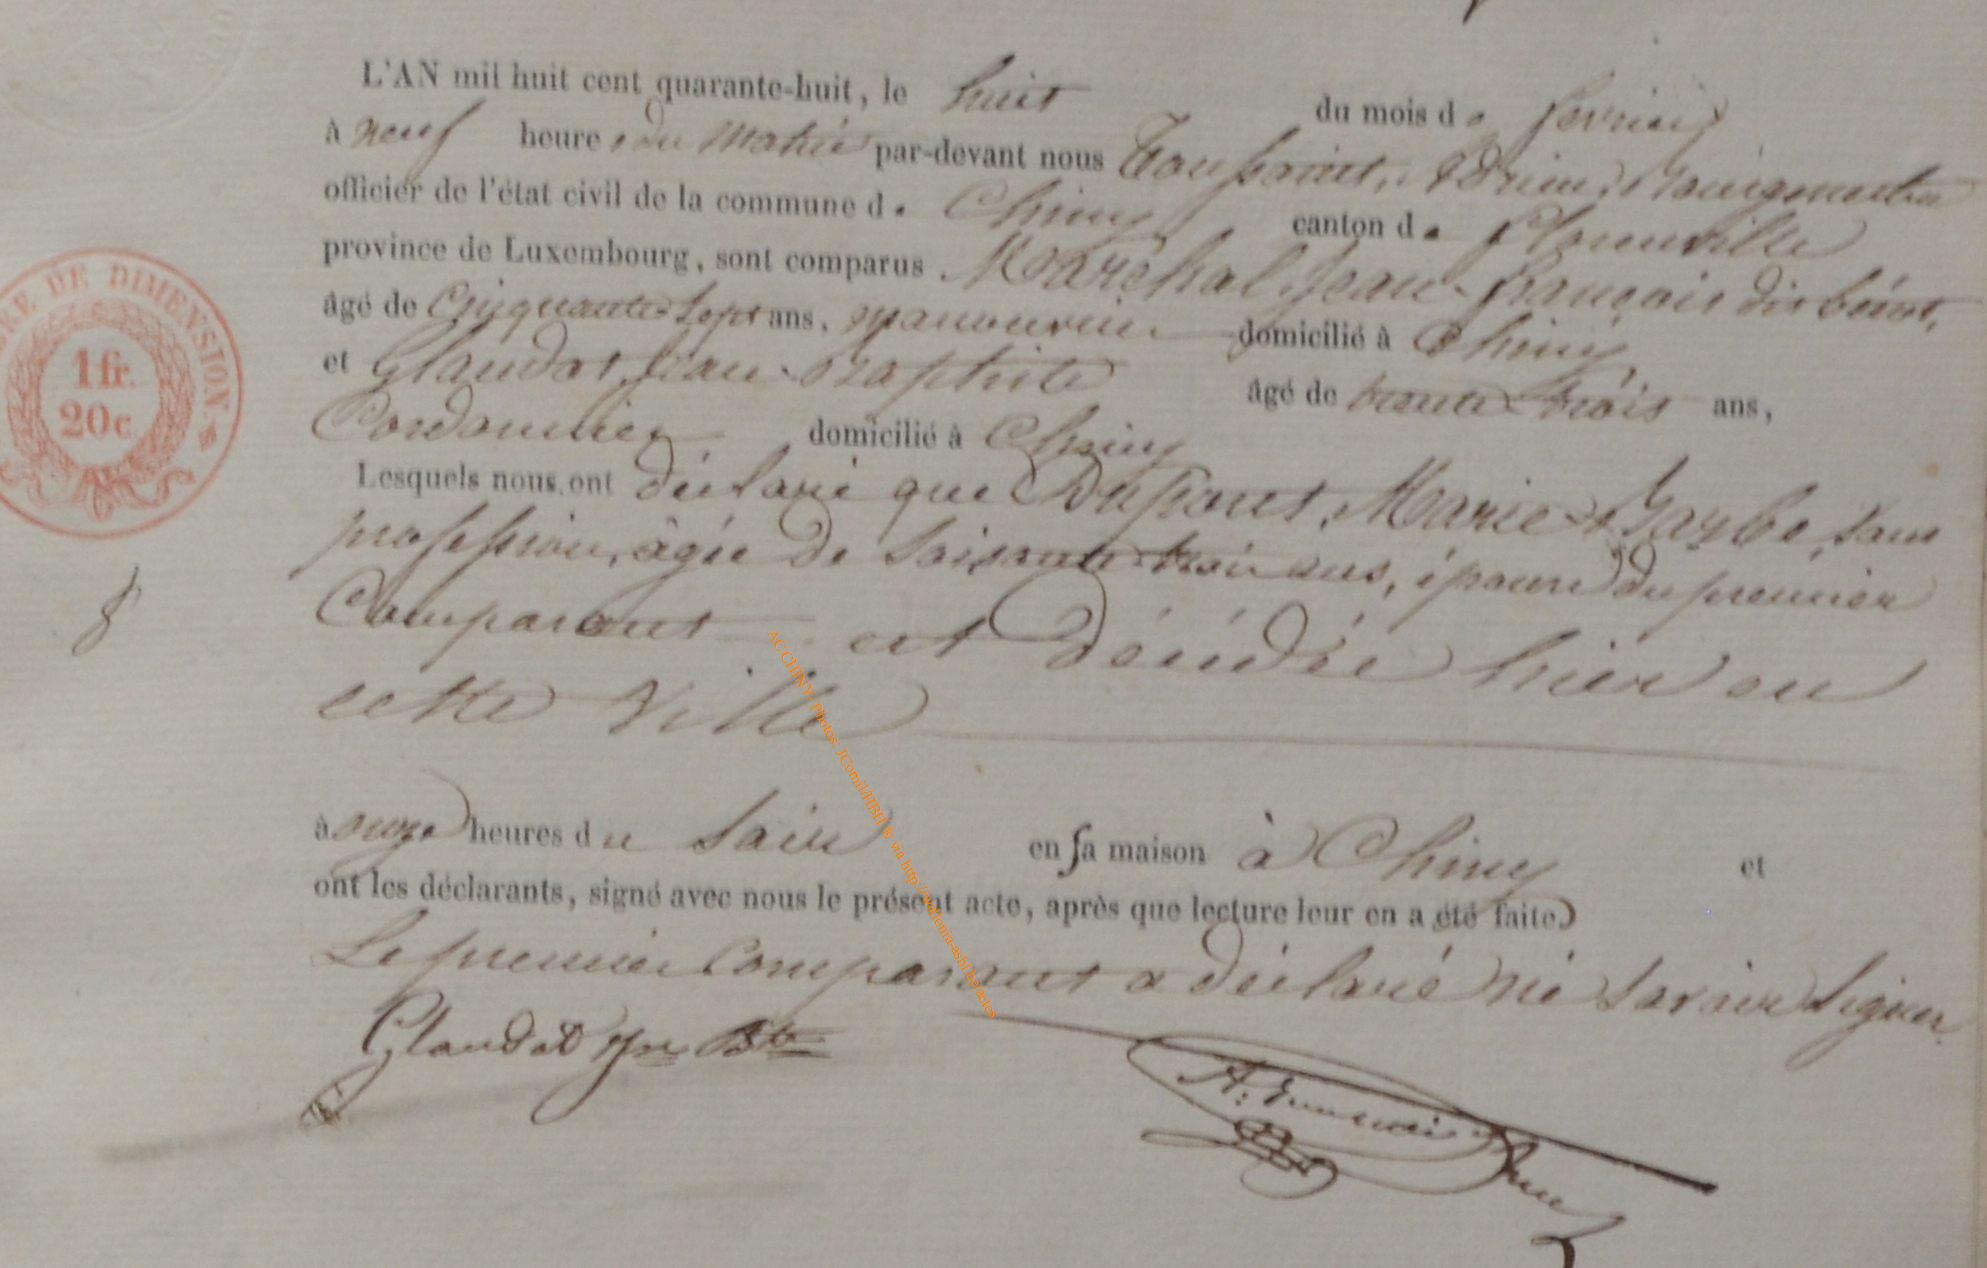 L'AN mil huit cent quarante-huit, le huit du mois de fevrier
à neuf heures du matin par-devant nous Toussaint, Adrien, Bourgmestre
officier de l'état civil de la commune de Chiny canton de Florenville
province de Luxembourg, sont comparus Maréchal Jean-françois dit
âgé de Cinquante-Sept ans, manouvrier domicilié à Chiny
et Glaudot Jean-Baptiste âgé de trente-trois ans,
Cordonnier domicilié à Chiny
Lesquels nous ont déclaré que Dupont, Marie-Barbe, sans
profession, âgée de soixante-trois ans, épouse du premier
Comparant est décédée hier en
cette Ville
à onze heures du Soir en sa maison à Chiny et
ont les déclarants, signé avec nous le présent acte, après que lecture leur en a été faite
Le premier Comparant a déclaré ne savoir signer
Glaudot Jn Bte
TIMBRE DE DIMENSION.
1 fr.
20 c
8
AC CHINY Photos: JComil/HBH & via http://